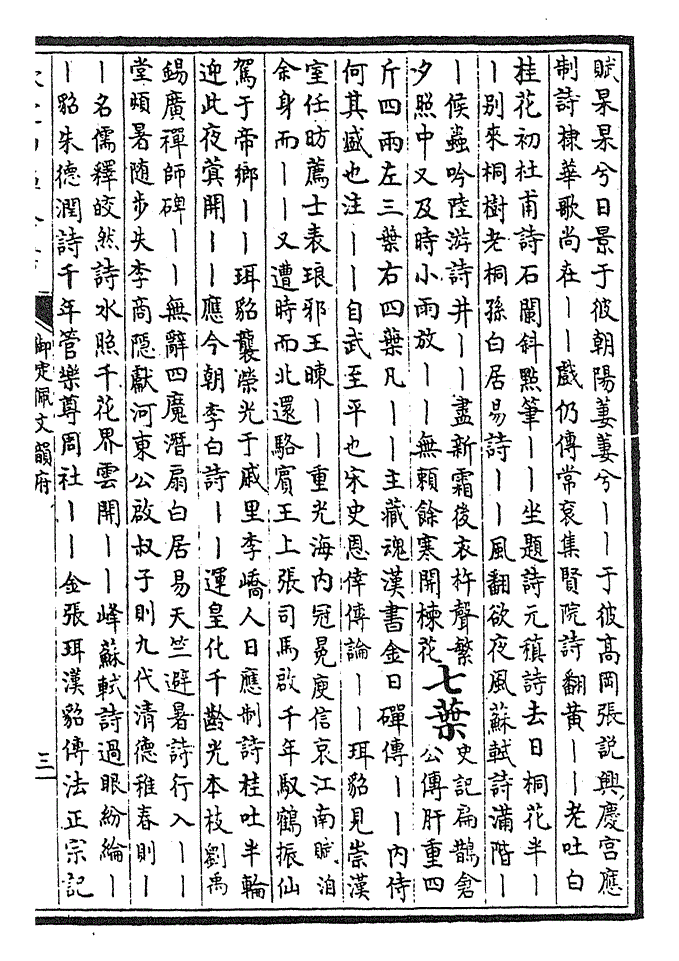 賦杲杲兮日景于彼朝陽萋萋兮丨丨于彼高岡張說興慶宮應
制詩棣華歌尚在丨丨戲仍傳常衮集賢院詩翻黃丨丨老吐白
桂花初杜甫詩石闌斜點筆丨丨坐題詩元稹詩去日桐花半丨
丨別來桐樹老桐孫白居易詩丨丨風翻欲夜風蘇軾詩滿階丨
丨候蟲吟陸游詩井丨丨盡新霜後衣杵聲繁
夕照中又及時小雨放丨丨無賴餘寒開楝花
七葉
史記扁鵲倉
公傳肝重四
斤四兩左三葉右四葉凡丨丨主藏魂漢書金日磾傳丨丨內侍
何其盛也注丨丨自武至平也宋史恩倖傳論丨丨珥貂見崇漢
室任昉薦士表琅邪王暕丨丨重光海內冠冕庾信哀江南賦洎
余身而丨丨又遭時而北還駱賓王上張司馬啟千年馭鶴振仙
駕于帝鄉丨丨珥貂襲榮光于戚里李嶠人日應制詩桂吐半輪
迎此夜蓂開丨丨應今朝李白詩丨丨運皇化千齡光本枝劉禹
錫廣禪師碑丨丨無辭四魔潛扇白居易天竺避暑詩行入丨丨
堂頗暑隨步失李商隱獻河東公啟叔子則九代清德稚春則丨
丨名儒釋皎然詩水照千花界雲開丨丨峰蘇軾詩過眼紛綸丨
丨貂朱德潤詩千年管樂尊周社丨丨金張珥漢貂傳法正宗記
御定佩文韻府
三